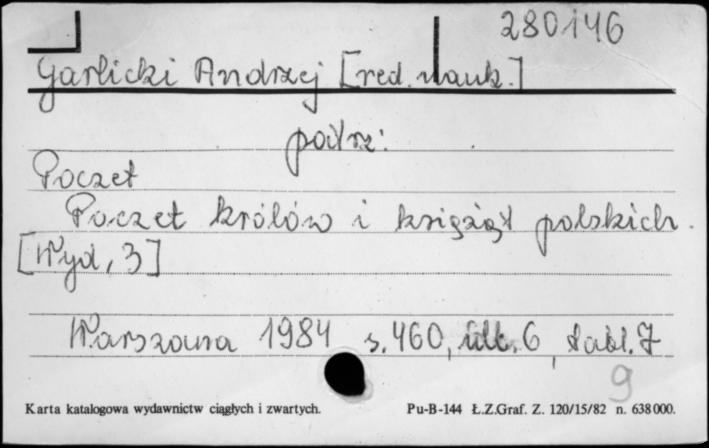 280146
Garlicki Andrzej [red. nauk.]
patrz:
Poczet
Poczet królów i książąt polskich.
[Wyd, 3]
Warszawa 1984 s. 460, ilb. 6, tabl. 7
9
Karta katalogowa wydawnictw ciągłych i zwartych. Pu-B-144 Ł.Z.Graf. Z. 120/15/82 n. 638000.